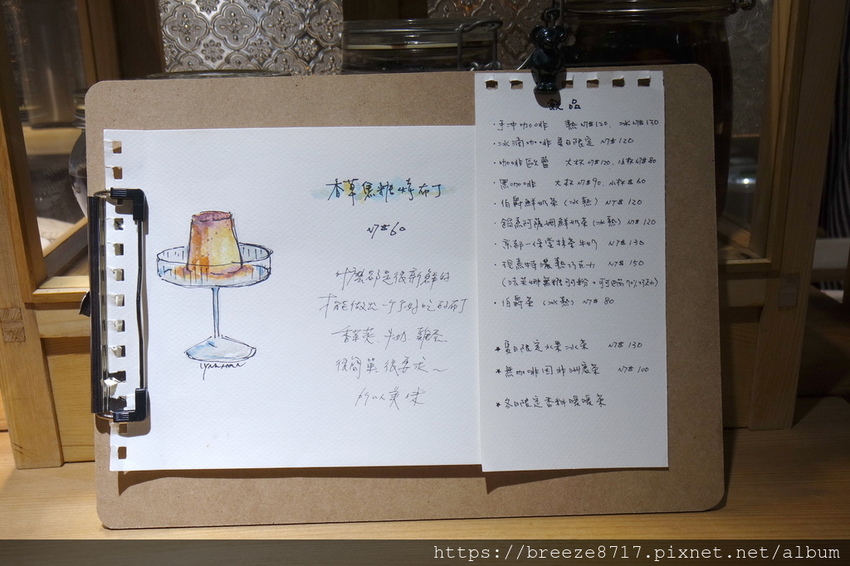 香草焦糖烤布丁
NT$60
什麼都是很新鮮的
才能做出一個好吃的布丁
香草莢、牛奶、雞蛋
很簡單 很要求～
所以美味
飲品
・手沖咖啡 熱NT$120、冰NT$130
・冰滴咖啡 夏日限定 NT$120
・咖啡歐蕾 大杯NT$120、小杯NT$80
・黑咖啡 大杯NT$90、小杯$60
・伯爵鮮奶茶(冰熱) NT$120
・錫馬阿薩姆鮮奶茶(冰熱) NT$120
・京都一保堂抹茶牛奶 NT$130
・現煮特濃熱巧克力 NT$150
・伯爵茶(冰熱) NT$80
★夏日限定水果冰茶 NT$130
★無咖啡因非洲國寶茶 NT$100
★冬日限定香料暖暖茶
https://breeze8717.pixnet.net/album